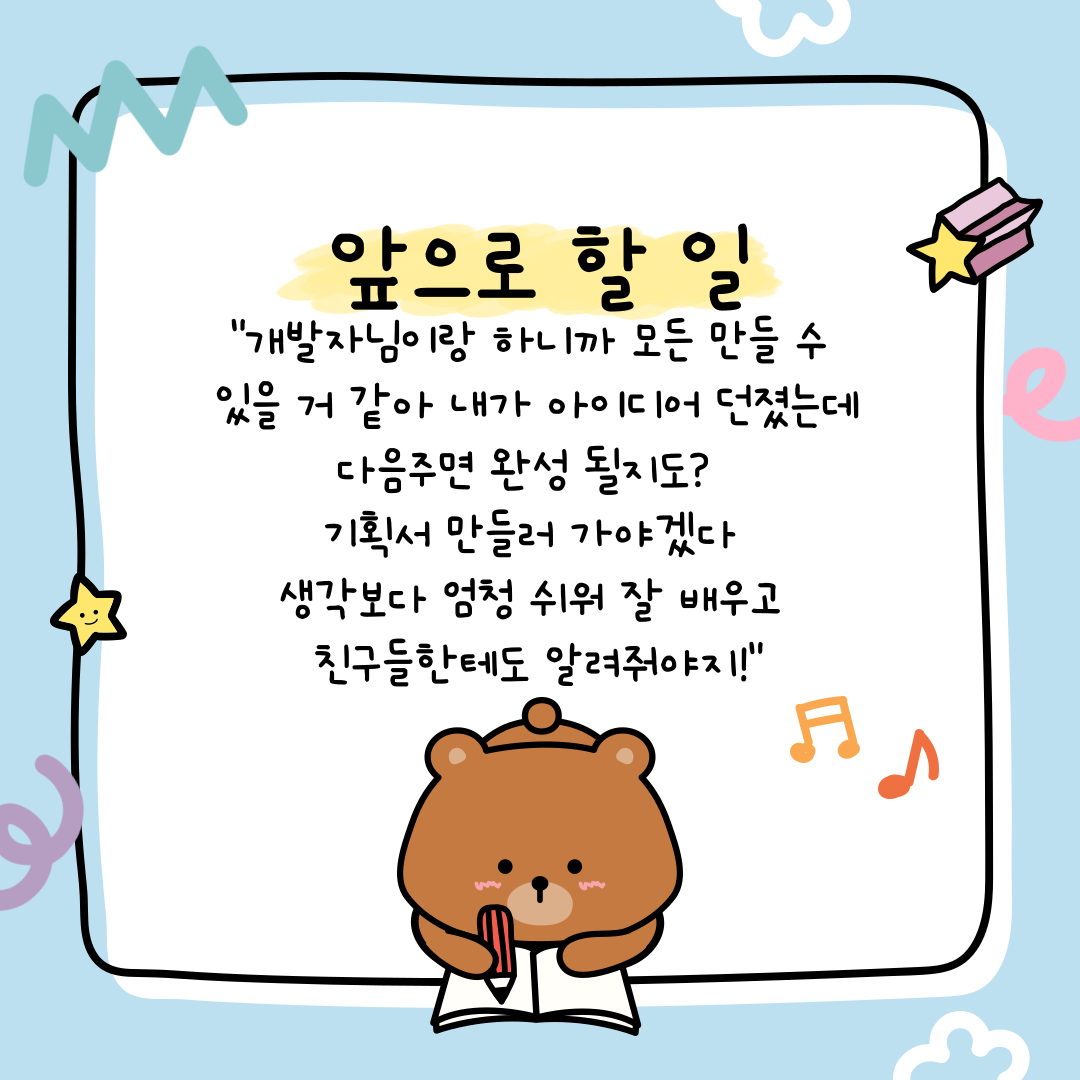 앞으로 할 일
"개발자님이랑 하니까 모든 만들 수
있을 거 같아 내가 아이디어 던졌는데
다음주면 완성 될지도?
기획서 만들러 가야겠다
생각보다 엄청 쉬워 잘 배우고
친구들한테도 알려줘야지!"